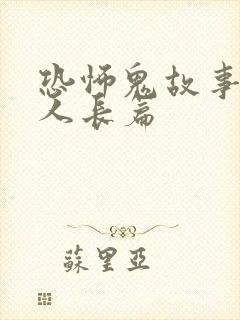 恐怖鬼故事
人長篇
蘇里亞